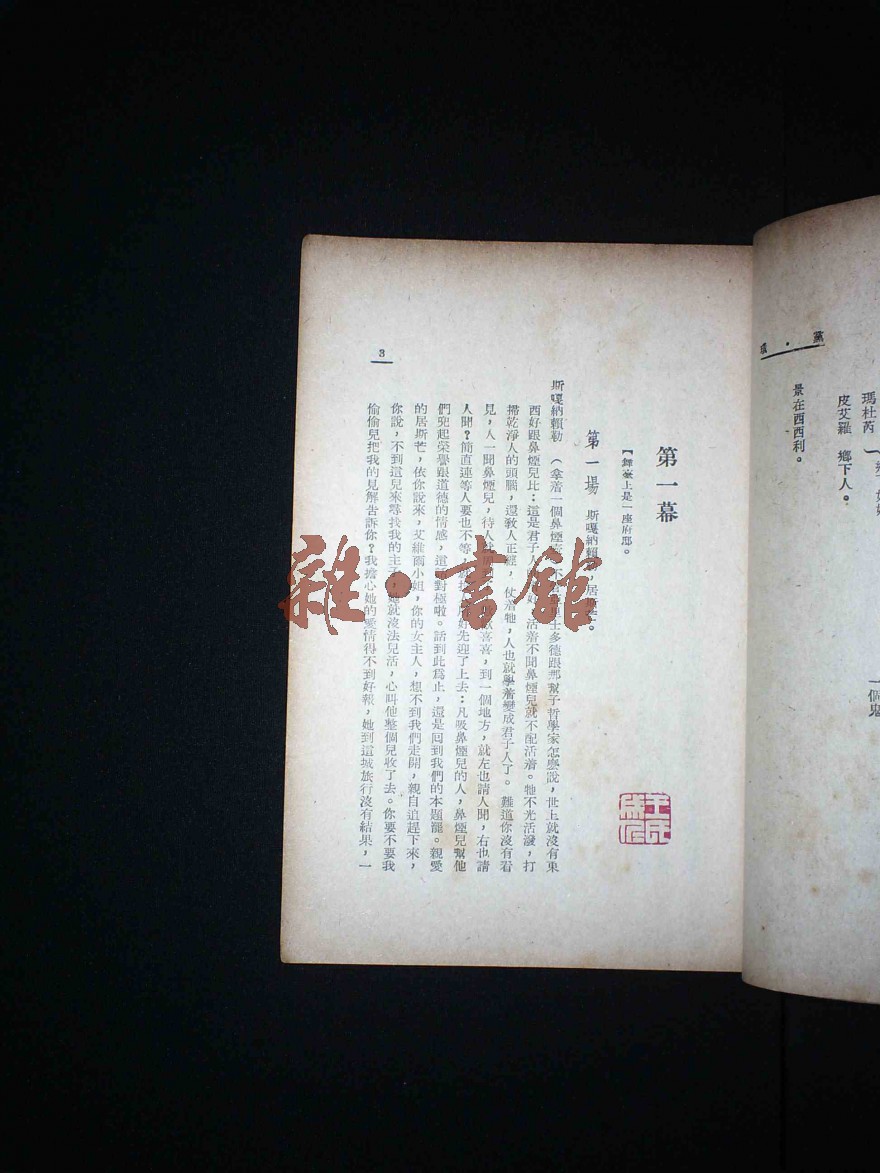 黨・璜
瑪杜芮
皮艾羅 鄉下人。
景在西西利。
一個鬼
第一幕
【舞臺上是一座府邸。
第一場 斯嘎納賴勒，居斯芒。
斯嘎納賴勒 （拿着一個鼻煙壺）士多德跟那幫子哲學家怎麼說，世上就沒有東
西好跟鼻煙兒比：這是君子人活着不聞鼻煙兒就不配活着。牠不光活潑，打
掃乾淨人的頭腦，還教人正經，仗着牠，人也就學着變成君子人了。難道你沒有看
見，人一聞鼻煙兒，待人就歡喜喜，到一個地方，就左也請人聞，右也請
人聞？簡直連等人要也不等，好先迎了上去：凡吸鼻煙兒的人，鼻煙兒幫他
們兜起榮譽跟道德的情感，這對極啦。話到此爲止，還是回到我們的本題罷。親愛
的居斯芒，依你說來，艾維爾小姐，你的女主人，想不到我們走開，親自追趕下來，
你說，不到這兒來尋找我的主子，她就沒法兒活，心叫他整個兒收了去。你要不要我
偷偷兒把我的見解告訴你？我擔心她的愛情得不到好報，她到這城旅行沒有結果，一
3
雜・書館